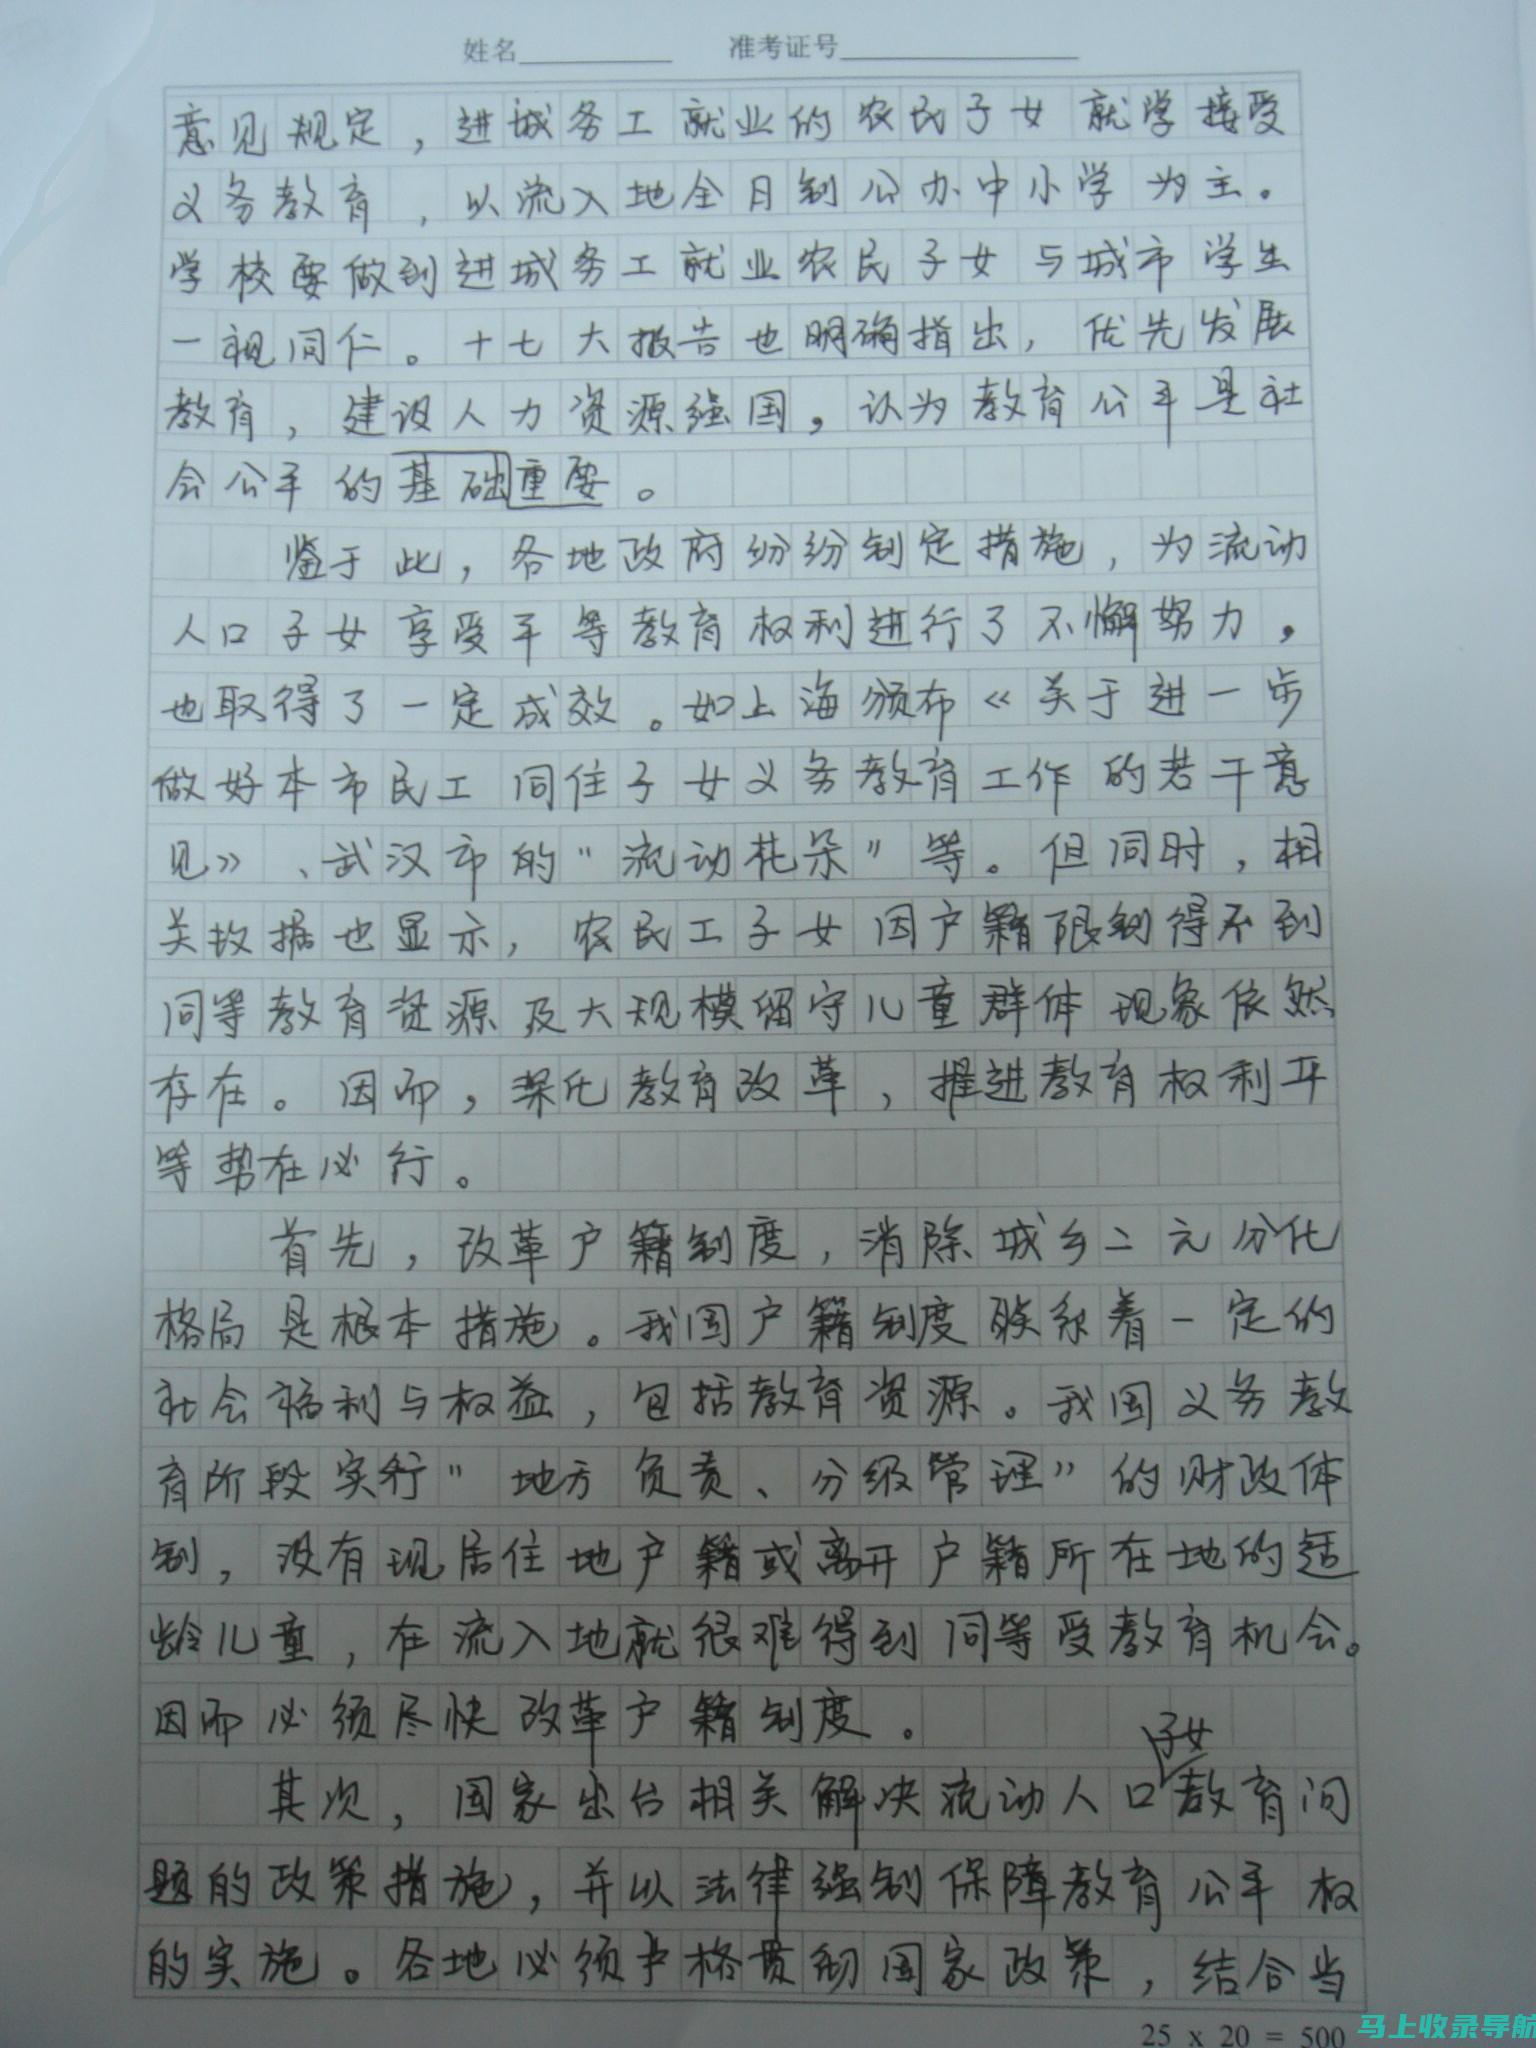 姓名 准考证号
意见规定，进城务工就业的农民子女就学接受
义务教育，以流入地全月制公办中小学为主。
学校要做到进城务工就业农民子女与城市学生
一视同仁。十七大报告也明确指出，优先发展
教育，建设人力资源强国，认为教育公平是社
会公平的基础重要。
鉴于此，各地政府纷纷制定措施，为流动
人口子女享受平等教育权利进行了不懈努力，
也取得了一定成效。如上海颁布《关于进一步
做好本市民工同住子女义务教育工作的若干意
见》、武汉市的“流动花朵”等。但同时，相
关数据也显示，农民工子女因户籍限制得不到
同等教育资源及大规模留守儿童群体现象依然
存在。因而，深化教育改革，推进教育权利平
等势在必行。
首先，改革户籍制度，消除城乡二元分化
格局是根本措施。我国户籍制度联系着一定的
社会福利与权益，包括教育资源。我国义务教
育阶段实行“地方负责、分级管理”的财政体
制，没有现居住地户籍或离开户籍所在地的适
龄儿童，在流入地就很难得到同等受教育机会。
因而必须尽快改革户籍制度。
子女
其次，国家出台相关解决流动人口教育问
题的政策措施，并以法律强制保障教育公平权
的实施。各地必须严格贯彻国家政策，结合当
25 x 20 = 500
马上收录导航